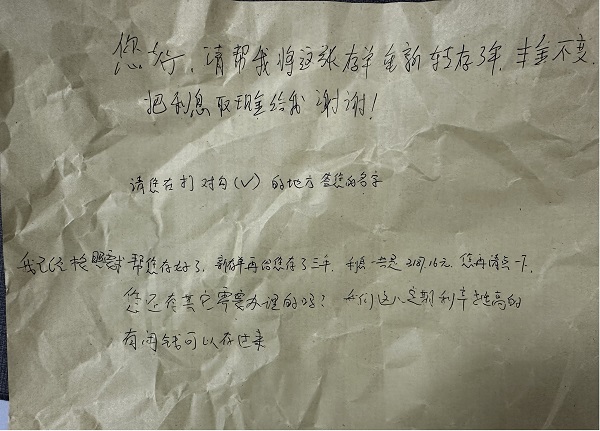 您好，请帮我将这张存单重新转存3年，本金不变，
把利息取现金给我 谢谢！
请您在打对勾（√）的地方签您的名字
我已经按照您 帮您存好了，新存单再给您存了三年，利息一共是3187.16元，您再清点一下，
您还有其它需要办理的吗？我们这儿定期利率挺高的
有闲钱可以存过来